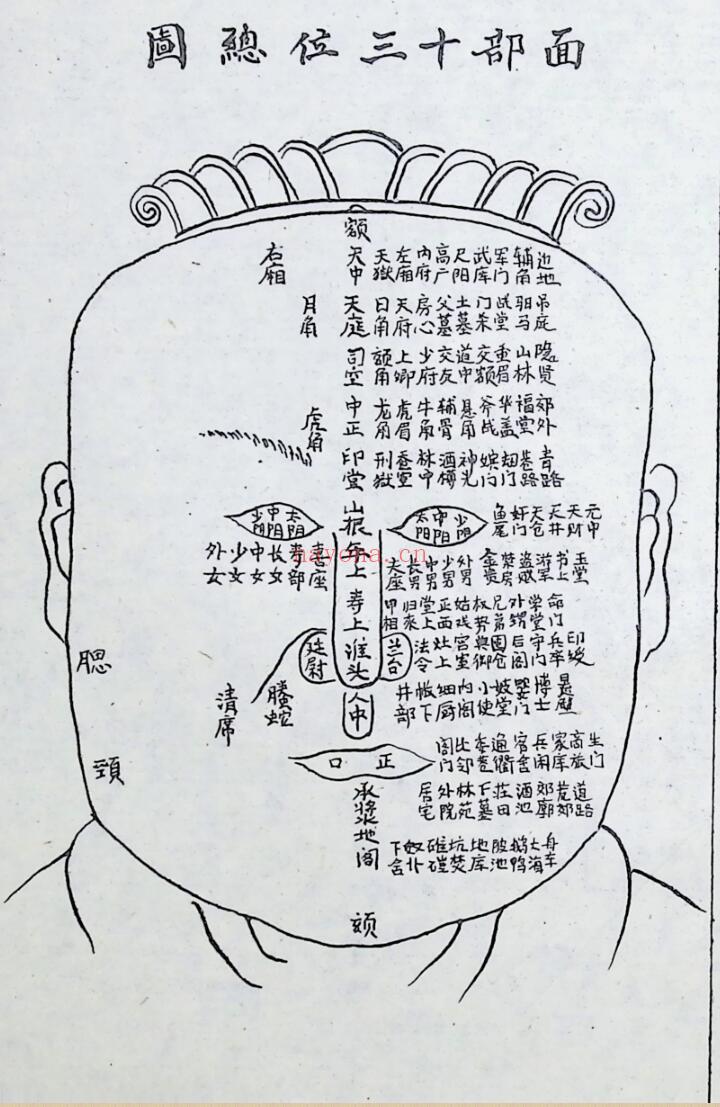 面部十三位總圖
额
右廂
天中 天獄 左廂 内府 高广 尺阳 武库 军门 辅角 边地
月角
天庭 日角 天府 房心 父墓 土墓 门杀 战堂 驲马 吊庭
司空 额角 上卿 少府 交友 道中 交额 重眉 山林 隐贤
虎角
中正 龙角 虎眉 牛角 辅骨 悬角 斧战 华盖 福堂 郊外
印堂 刑獄 蚕室 林中 酒樽 神光 嫔门 劫门 巷路 青路
少阴 中阴 太阴 山根 太阳 中阳 少阳 鱼尾 奸门 天仓 天井 天财 元中
外女 少女 中女 长女 妻部 妻座 年上 夫座 长男 中男 少男 外男 金匮 禁房 盗贼 游军 书上 玉堂
寿上 甲相 归来 堂上 正面 姑姨 权势 兄弟 外甥 学堂 命门
廷尉 准头 兰台 法令 灶上 宫室 典御 园仓 后阁 守门 兵车 印绶
腮
清席
螣蛇
人中 井部 帐下 细厨 内阁 小使 妓堂 婴门 博士 悬壁
頸
口正 阁门 比邻 委巷 通衢 官舍 兵阑 家库 商旅 生门
承浆 居宅 外院 林苑 下墓 莊田 酒池 郊廓 荒郊 道路
地阁 下舍 奴仆 碓磑 坑焚 地库 陂池 鹅鸭 大海 舟车
颏
nayona.cn